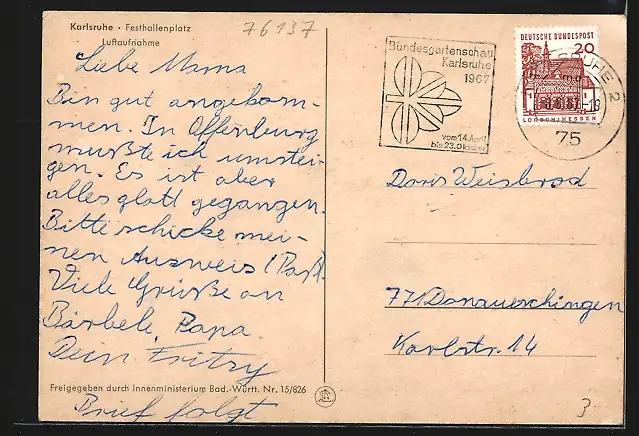 Karlsruhe · Festhallenplatz
Luftaufnahme
76137
Liebe Mama
Bin gut angekom-
men. In Offenburg
mußte ich umstei-
gen. Es ist aber
alles glatt gegangen.
Bitte schicke mei-
nen Ausweis (Paß).
Viele Grüße an
Bärbele, Papa.
Dein Fritzy
Freigegeben durch Innenministerium Bad.-Württ. Nr. 15/826
Brief folgt
Bundesgartenschau
Karlsruhe
1967
vom 14. April
bis 23. Oktober
DEUTSCHE BUNDESPOST
20
LORSCH/HESSEN
KARLSRUHE 2
75
Doris Weisbrod
771 Donaueschingen
Karlstr. 14
3